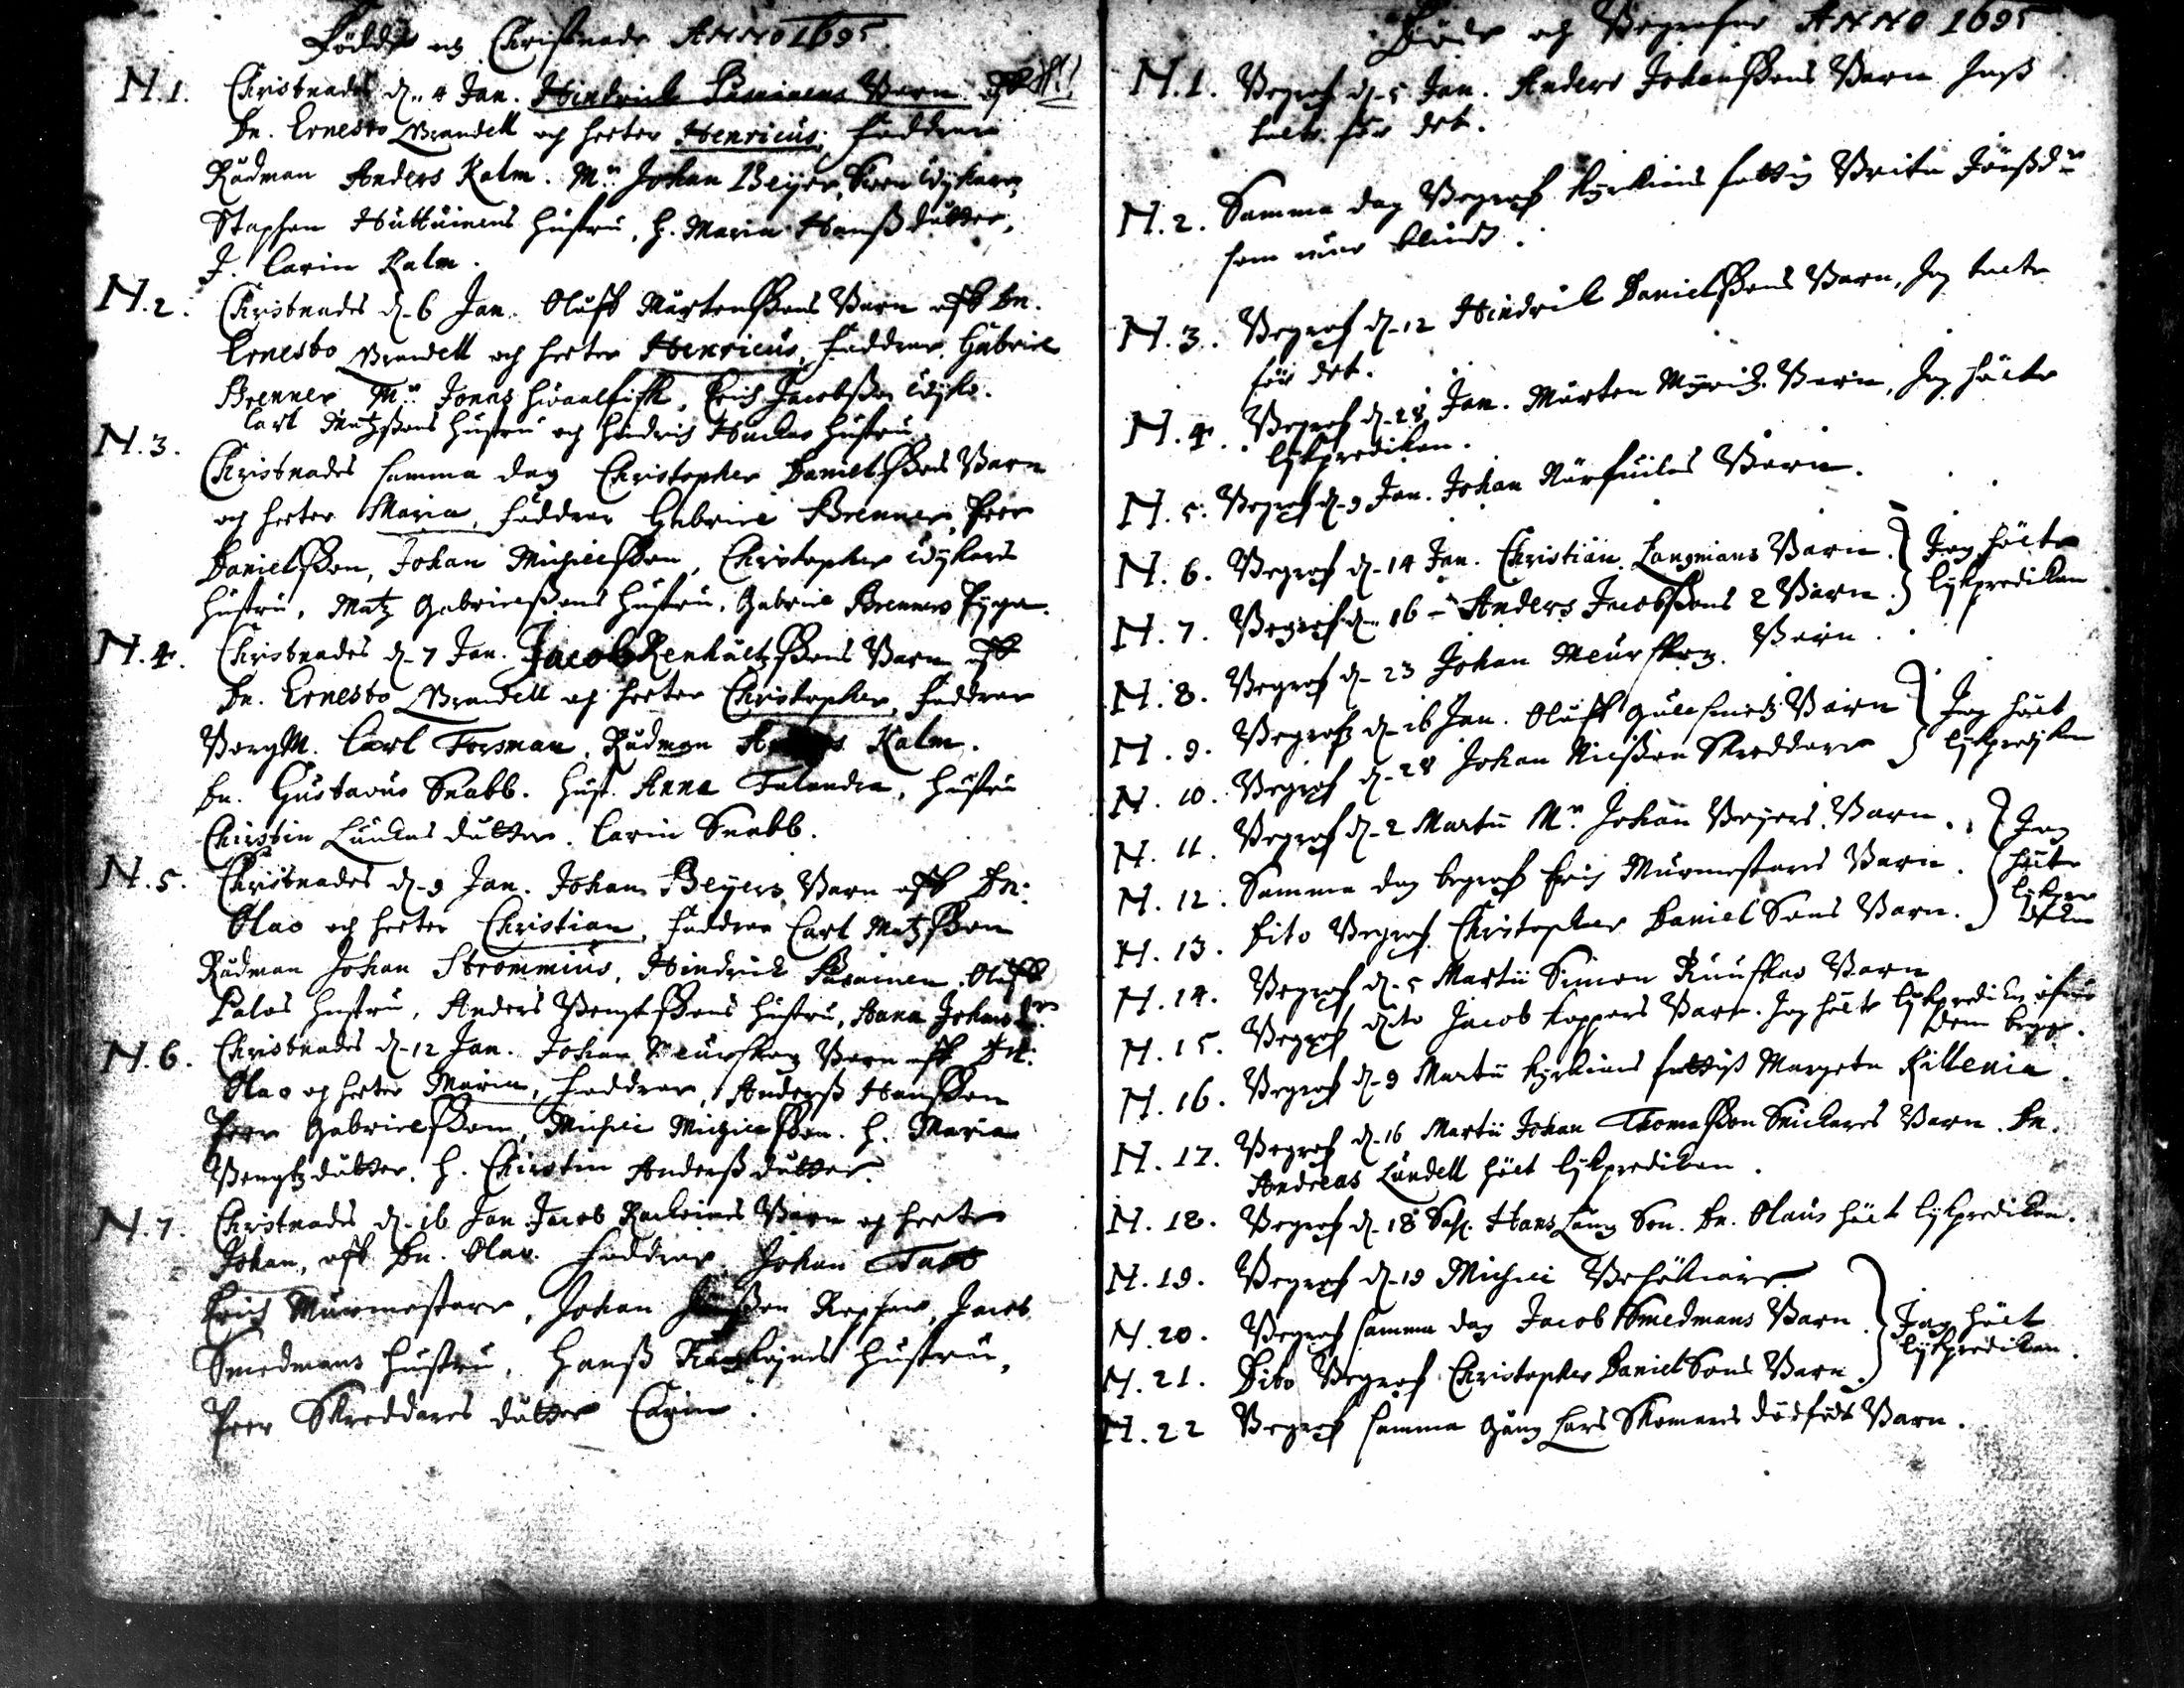 Födde och Christnade ANNO 1695
N.1. Christnades d. 4 Jan. Hindrich Parainens Barn aff
Dn. Ernesto Brandell och heeter Henricus, faddrar
Rådman Anders Kalm. Mr. Johan Beijer,
Staphan Huttuinens hustru, h. Maria Hanßdotter,
J. Carin Kalm.
N.2. Christnades d. 6 Jan. Oluff Mårtenßons Barn aff Dn.
Ernesto Brandell och heeter Henricus, faddrar Gabriel
Brenner Mr. Jonas Hwaalfisk, Erich Jacobßon
Carl Matzßons hustru och Hindrich hustru
N.3. Christnades samma dag Christopher Danielßons Barn
och heeter Maria, faddrar Gabriel Brenner, Peer
Danielßon, Johan Michelßon, Christopher
hustru, Matz Gabrielßons hustru, Gabriel Brenners Pyga.
N.4. Christnades d. 7 Jan. Jacob Renhultzßons Barn aff
Dn. Ernesto Brandell och heeter Christopher, faddrar
BorgM. Carl Forsman, Rådman Kalm.
Dn. Gustavus Snabb. Hust. Anna Talandra, hustru
Christin Luukasdotter. Carin Snabb.
N.5. Christnades d. 9 Jan. Johan Beijers Barn aff Dn:
Olao och heeter Christian, faddrar Carl Matzßon
Rådman Johan Strommius, Hindrich Parainen, Oluff
Palos hustru, Anders Bengtßons hustru, Anna Johans dr.
N.6. Christnades d. 12 Jan. Johan Meurßkog Barn aff Dn:
Olao och heeter Maria, faddrar, Anderß Hanßon
Peer Gabrielßon, Michel Michelßon. h. Maria
Bengtzdotter. h. Christin Anderßdotter.
N.7. Christnades d. 16 Jan Jacob Barn och heeter
Johan, aff Dn. Olao. faddrar Johan
Erich Murmestare, Johan Jacob
Smedmans hustru, Hanß hustru,
Peer Skreddares dotter Carin.
Döde och Begrafne ANNO 1695
N.1. Begrof d. 5 Jan. Anders Johanßons Barn Jagh
talte för det.
N.2. Samma dag Begrof kyrkians fattig Brita
som war blindt.
N.3. Begrof d. 12 Hindrik Danielßons Barn, Jag talte
för det.
N.4. Begrof d. 28 Jan. Mårten Barn, Jag hölte
lijkpredikan.
N.5. Begrof d. 9 Jan. Johan Barn.
N.6. Begrof d. 14 Jan. Christian Langmans Barn. } Jag hölte
N.7. Begrof d. 16 - Anders Jacobßons 2 Barn. } lijkpredikan
N.8. Begrof d. 23 Johan Meurßkog Barn.
N.9. Begrof d. 26 Jan. Oluff Gullsmedz Barn } Jag hölt
N.10. Begrof d. 28 Johan Nilßon Skreddare } lijkpredikan
N.11. Begrof d. 2 Martii Mr. Johan Beijers Barn. } Jag
N.12. Samma dag begrof Erich Murmestares Barn. } hölte
N.13. Dito Begrof Christopher Daniel Sons Barn. } lijkpredikan
N.14. Begrof d. 5 Martii Simon Barn
N.15. Begrof dito Jacob Koppars Barn. Jag hölte lijkpredikan öfwer
dem begge.
N.16. Begrof d. 9 Martii kyrkians fattiß Margeta Killenia.
N.17. Begrof d. 16 Martii Johan Thomaßon Snickares Barn. Dn.
Andreas Lundell hölt lijkpredikan.
N.18. Begrof d. 18 Hans Lang Son. Dn. Olaus hölt lijkpredikan.
N.19. Begrof d. 19 Michel Besökiare.
N.20. Begrof samma dag Jacob Smedmans Barn. } Jag hölt
N.21. Dito Begrof Christopher Daniel Sons Barn. } lijkpredikan.
N.22 Begrof samma gång Lars Skomars dödfödt Barn.